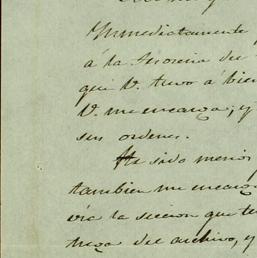 Ynmedictamente
á la Tesoreria del
que V. tuvo á bien
V. me encarga; y
sus ordenes.
He sido menos
tambien me encarga
via la seccion que te
del archivo, y